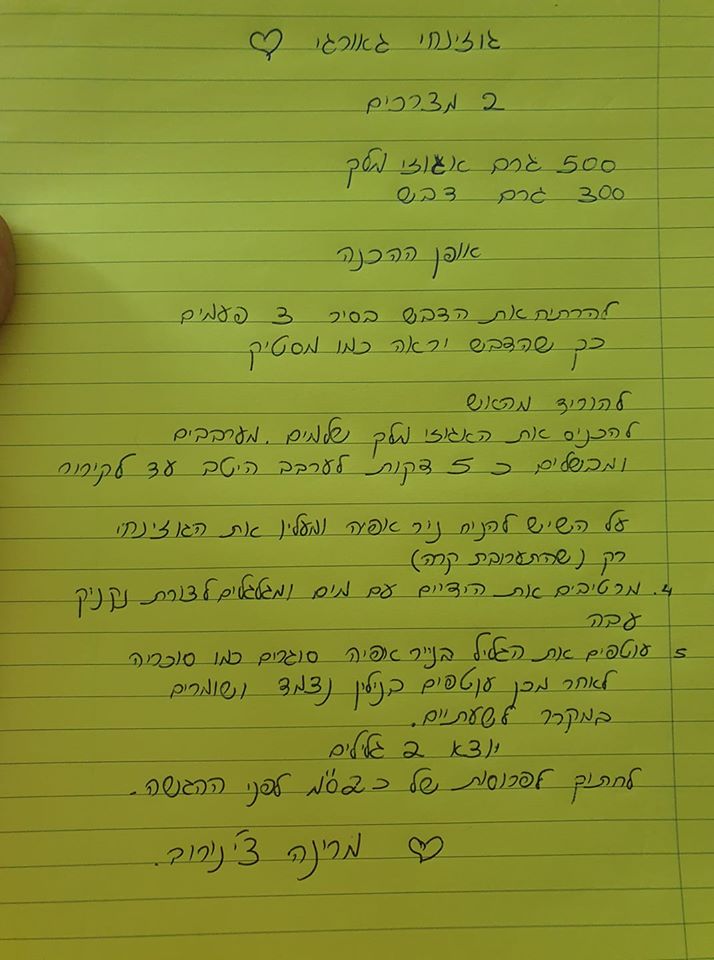 גוזינחי גאורגי ♡
2 מצרכים
500 גרם אגוזי מלק
300 גרם דבש
אופן ההכנה
להרתיח את הדבש בסיר 3 פעמים
כך שהדבש יראה כמו מסטיק
להוריד מהאש
להכניס את האגוזי מלק שלמים. מערבבים
ומבשלים כ 5 דקות לערבב היטב עד לקירור
על השיש להניח נייר אפיה ומעלין את הגוזינחי
רק (שהתערובת קרה)
4. מרטיבים את הידיים עם מים ומגלגלים לצורת נקניק
עבה
5 עוטפים את הגליל בנייר אפיה סוגרים כמו סוכריה
לאחר מכן עוטפים בנילין נצמד ושומרים
במקרר לשעתיים.
יוצא 2 גלילים
לחתוך לפרוסות של כ 2 ס"מ לפני ההגשה.
♡ מרינה צ'נירוב.